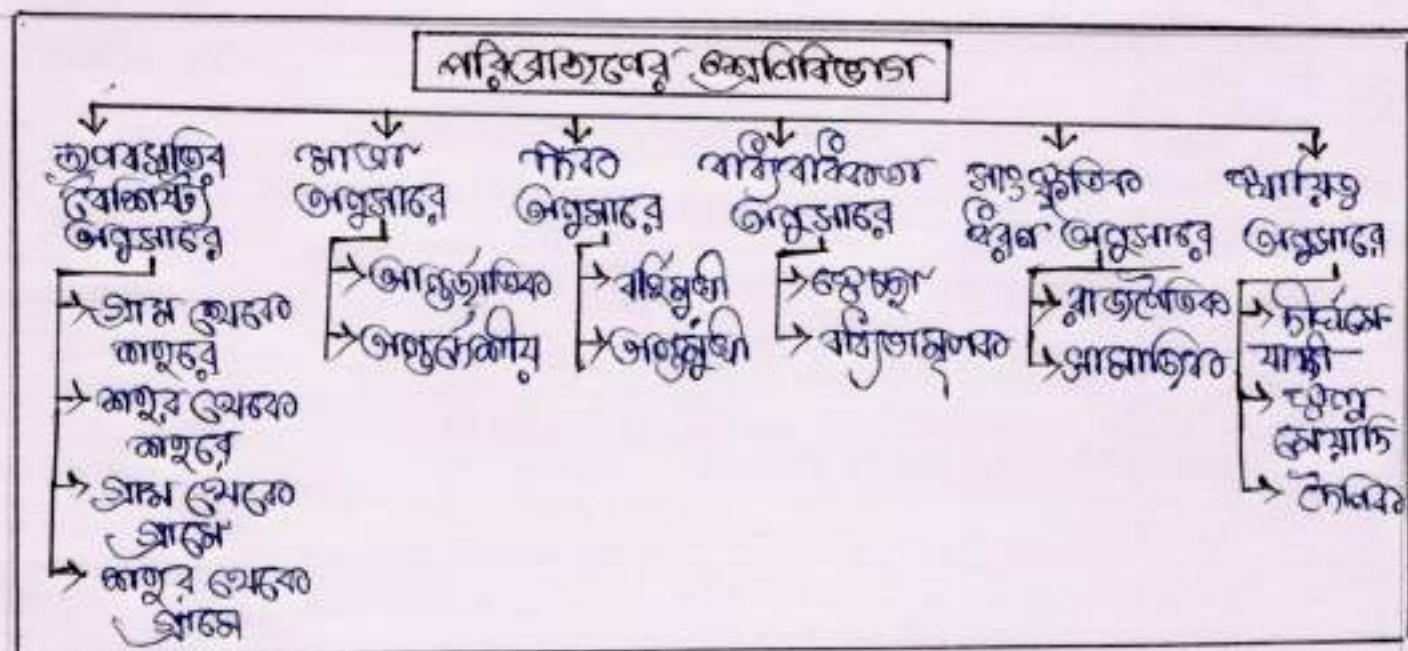 পরিব্রাজণের শ্রেণিবিভাগ
জনবসতির
বৈশিষ্ট্য
অনুসারে
গ্রাম থেকে
শহরে
শহর থেকে
শহরে
গ্রাম থেকে
গ্রামে
শহর থেকে
গ্রামে
মাত্রা
অনুসারে
আন্তর্জাতিক
অন্তর্দেশীয়
দিক
অনুসারে
বর্হিমুখী
অন্তর্মুখী
বাধ্যবাধকতা
অনুসারে
স্বেচ্ছা
বাধ্যতামূলক
সাংস্কৃতিক
ধরণ অনুসারে
রাজনৈতিক
সামাজিক
স্থায়িত্ব
অনুসারে
দীর্ঘমে
য়াদী
স্বল্প
মেয়াদি
দৈনিক